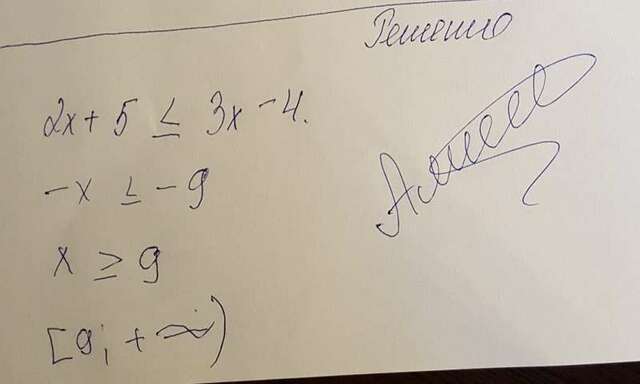 Решено
2x + 5 ≤ 3x - 4.
-x ≤ -9
x ≥ 9
[9; + ∞)